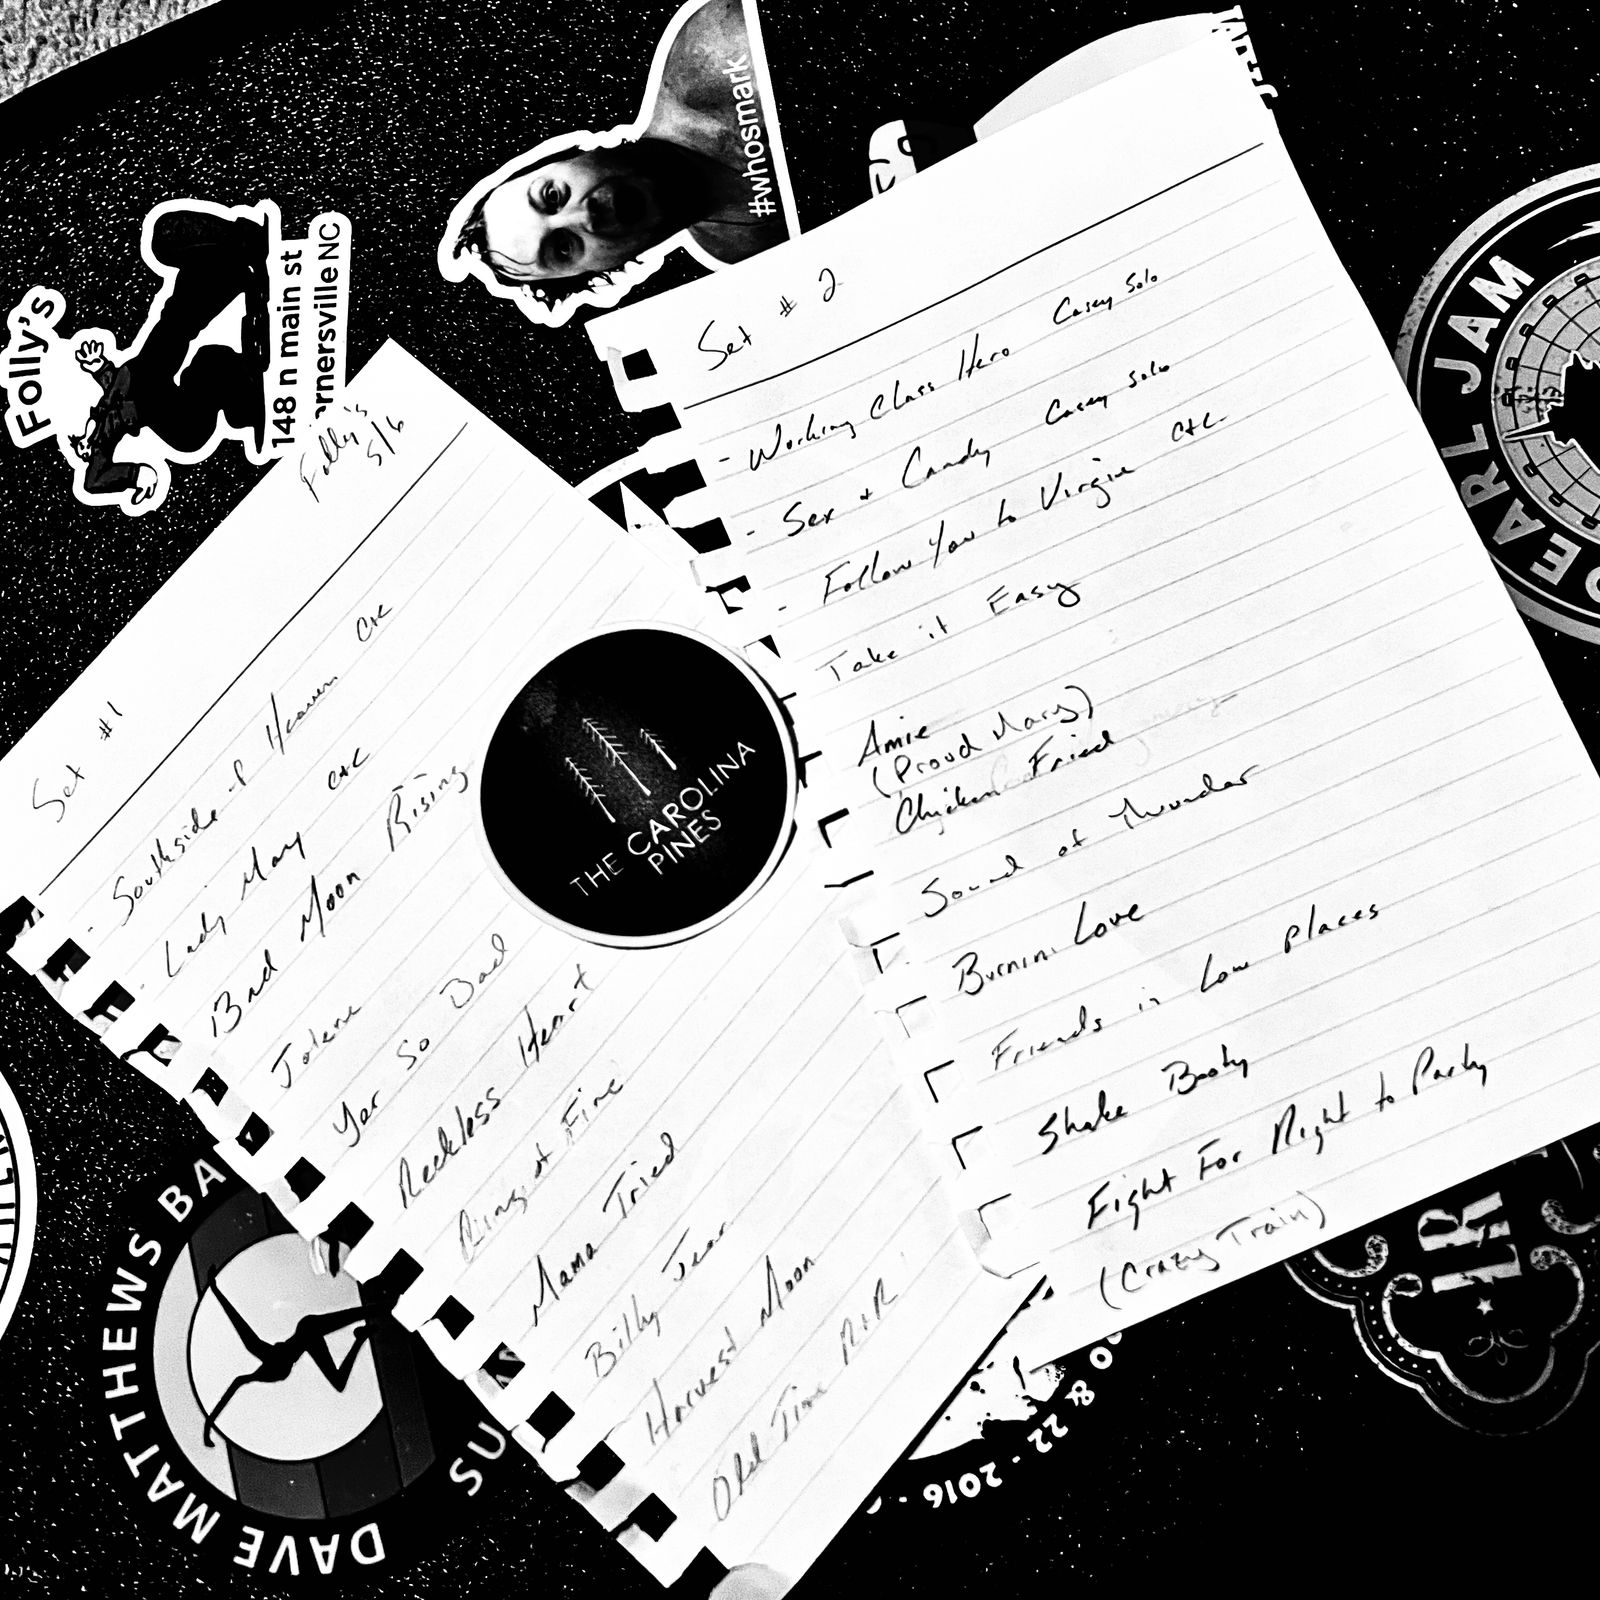 Folly's
148 n main st
ernersville NC
#whosmark
PEARL JAM
Folly's
5/6
Set #1
- Southside of Heaven C+C
- Lady Mary C+C
Bad Moon Rising
Jolene
Yer So Bad
Reckless Heart
Ring of Fire
Mama Tried
Billy Jean
Harvest Moon
Old Time R+R
THE CAROLINA
PINES
Set #2
- Working Class Hero Casey Solo
- Sex + Candy Casey Solo
- Follow You to Virgie C+C
Take it Easy
Amie
(Proud Mary)
Chicken Fried
Sound of Thunder
Burnin Love
Friends in Low Places
Shake Booty
Fight For Right to Party
(Crazy Train)
DAVE MATTHEWS BA
SU
0 & 22 · 2016 ·